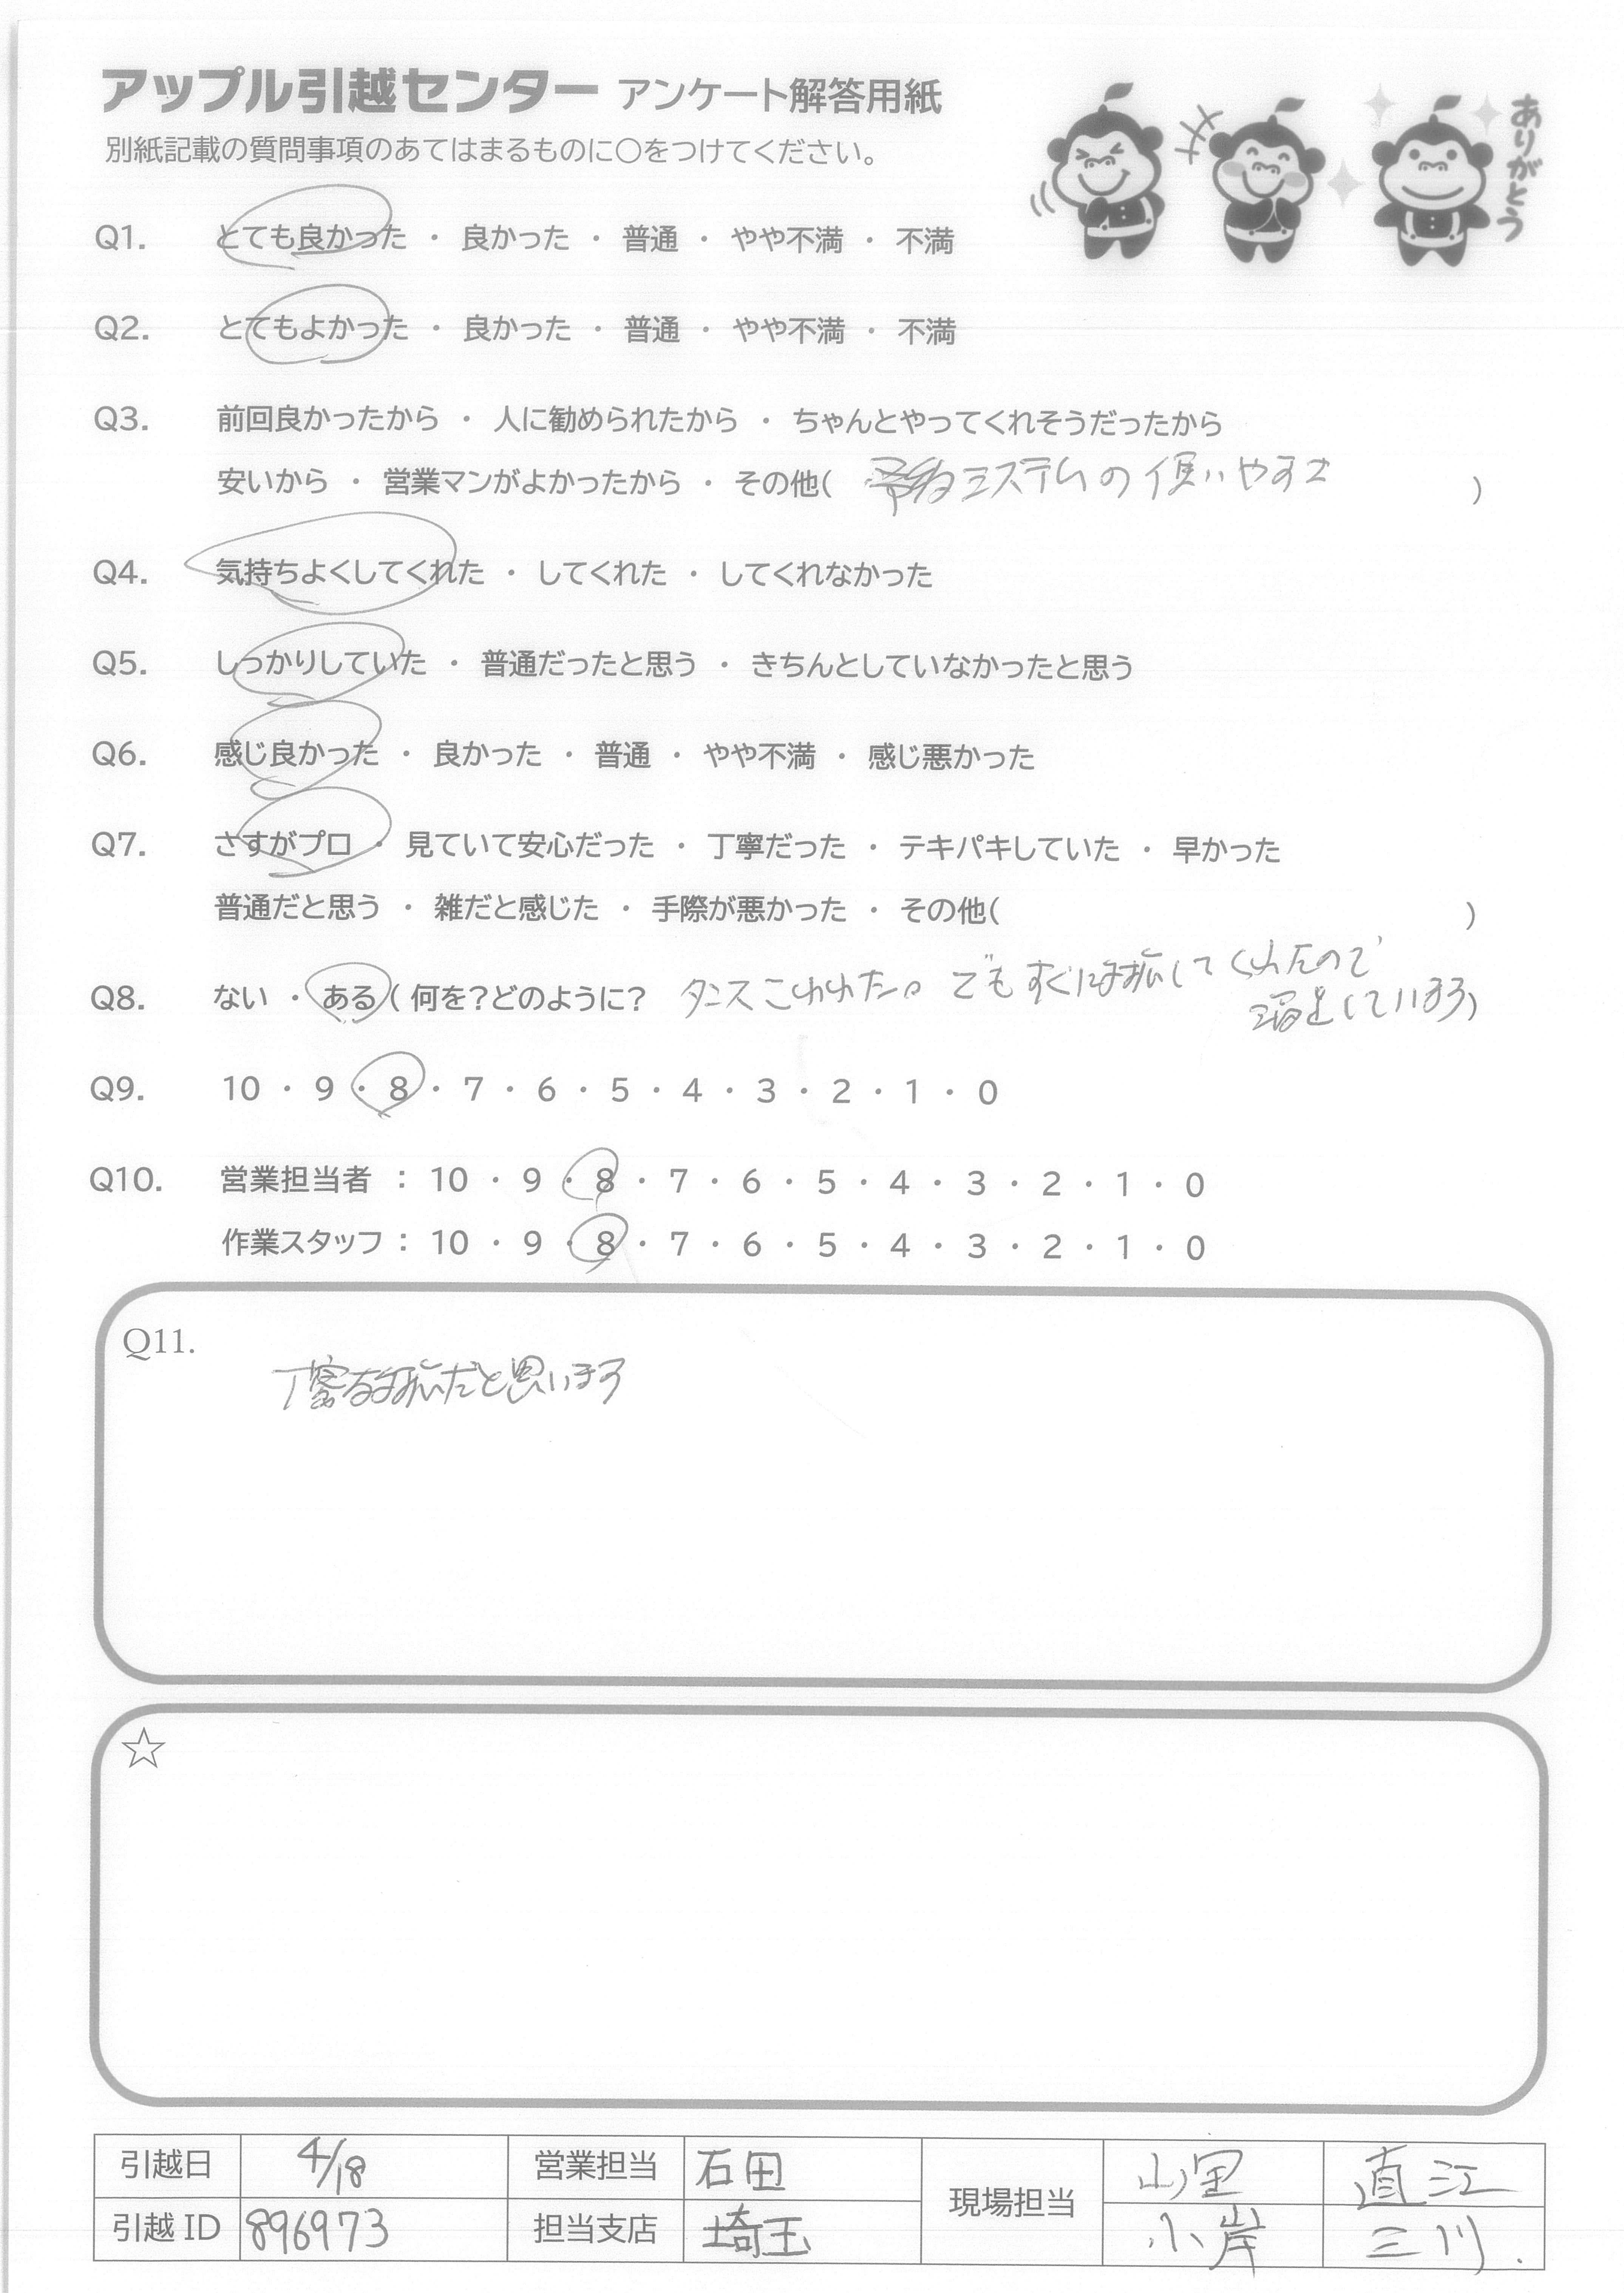 アップル引越センター アンケート解答用紙
別紙記載の質問事項のあてはまるものに〇をつけてください。
ありがとう
Q1. とても良かった ・ 良かった ・ 普通 ・ やや不満 ・ 不満
Q2. とてもよかった ・ 良かった ・ 普通 ・ やや不満 ・ 不満
Q3. 前回良かったから ・ 人に勧められたから ・ ちゃんとやってくれそうだったから
安いから ・ 営業マンがよかったから ・ その他( 予約システムの使いやすさ )
Q4. 気持ちよくしてくれた ・ してくれた ・ してくれなかった
Q5. しっかりしていた ・ 普通だったと思う ・ きちんとしていなかったと思う
Q6. 感じ良かった ・ 良かった ・ 普通 ・ やや不満 ・ 感じ悪かった
Q7. さすがプロ ・ 見ていて安心だった ・ 丁寧だった ・ テキパキしていた ・ 早かった
普通だと思う ・ 雑だと感じた ・ 手際が悪かった ・ その他( )
Q8. ない ・ ある ( 何を?どのように? タンスこわれた。でもすぐに対応してくれたので
満足しています)
Q9. 10 ・ 9 ・ 8 ・ 7 ・ 6 ・ 5 ・ 4 ・ 3 ・ 2 ・ 1 ・ 0
Q10. 営業担当者 : 10 ・ 9 ・ 8 ・ 7 ・ 6 ・ 5 ・ 4 ・ 3 ・ 2 ・ 1 ・ 0
作業スタッフ : 10 ・ 9 ・ 8 ・ 7 ・ 6 ・ 5 ・ 4 ・ 3 ・ 2 ・ 1 ・ 0
Q11.
丁寧な対応だと思います
☆
引越日 4/18 営業担当 石田 現場担当 山里 直江
引越 ID 896973 担当支店 埼玉 小岸 三川